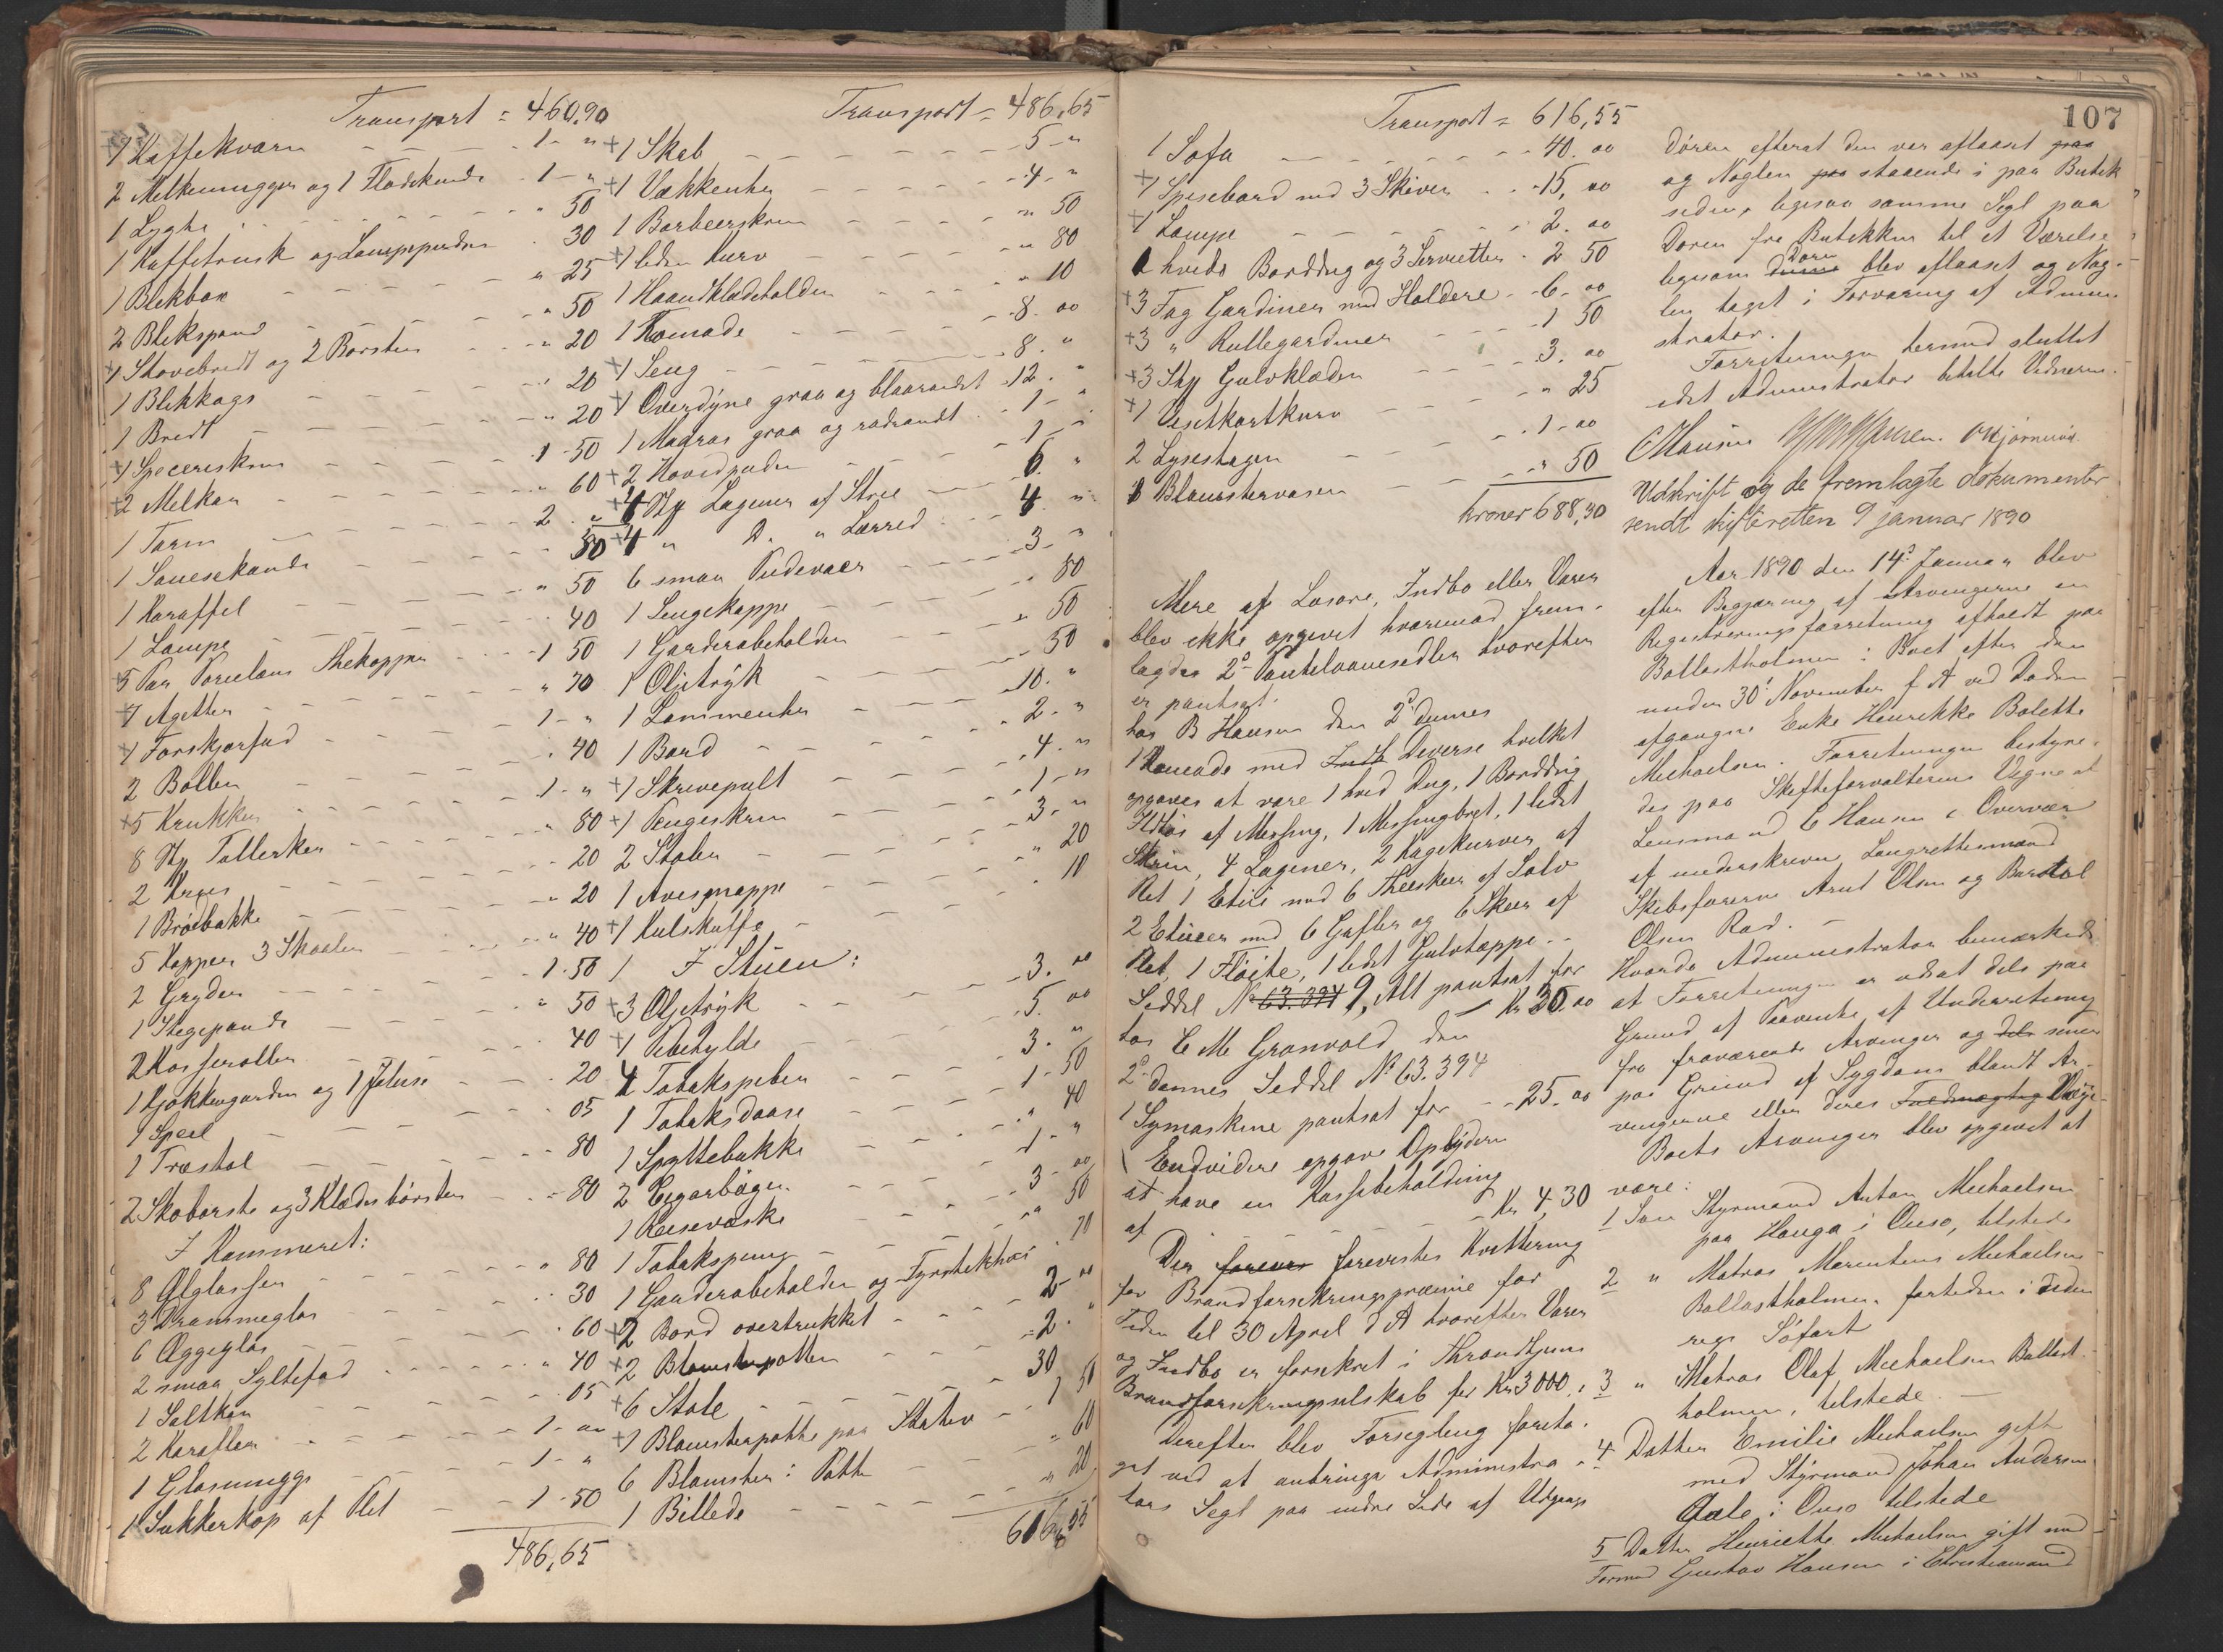 Transport = 460,90
+1 Kaffekværn - - - 1 - "
2 Melkemugger og 1 Flødekande - 1 - "
1 Lygte - - - " 50
1 Kaffetrusk og Lampepuder - 30
1 Blekbox - - - " 25
2 Blekspand - - - " 50
+1 Stovebredt og 2 Børster - - " 20
1 Blekkags - - - " 20
1 Bredt - - - " 20
+1 Speceriskrin - - - 1 - 50
+2 Melkar - - - " 60
1 Tarin - - - 2 . "
1 Sausekande - - - 50
1 Karaffel - - - " 50
1 Lampe - - - 40
+5 Par Porcelans Thekopper - - 1 50
+7 Asjetter - - - " 70
+1 Forskjærfad - - - 1 - "
2 Boller - - - 40
+5 Krukker - - - 1 - "
8 Stk Tallerken - - - " 80
2 Krus - - - 20
1 Brødbakke - - - " 20
5 Kopper 3 Skaaler - - - " 40
2 Gryder - - - 1 . 50
1 Stegepande - - - " 50
2 Kasseroller - - - 40
1 Kjøkkengarden og 1 Jalusi - - 20
1 Speil - - - 05
1 Træstol - - - 80
2 Skobørste og 3 Klædesbørster - - 80
I Kammeret:
8 Ølglasser - - - " 80
3 Drammeglas - - - 30
6 Æggeglas - - - 60
2 smaa Syltefad - - - " 40
1 Saltkar - - - 05
2 Karafler - - - 1 - 00
1 Glasmugge - - - 1 - "
1 Sukkerkop af Plet - - 1 - 50
486,65
Transport = 486,65
+1 Skab - - - 5 - "
+1 Vækkeuhr - - - 4 - "
1 Barbeerskrin - - - " 50
+1 liden Kurv - - - " 80
1 Haandklædeholder - - - " 10
1 Komode - - - 8 . 00
+1 Seng - - - 8 . "
+1 Overdyne graa og blaarandet - 12 . "
1 Madras graa og rødrandt - 1 - "
+2 Hovedpuder - - - 1 - "
+4 Stk Lagener af Strie - - 6 . "
+4 " D. " Lærred - - 4 . "
6 smaa Pudevaer - - - 3 - "
1 Sengekappe - - - " 80
1 Garderobeholder - - - " 50
1 Oljetryk - - - 50
1 Lommeuhr - - - 10 . "
1 Bord - - - 2 - "
+1 Skrivepult - - - 4 - "
+1 Pengeskrin - - - 1 - "
2 Stoler - - - 3 - "
1 Avismappe - - - " 20
+1 Kulskuffe - - - 10
I Stuen:
+3 Oljetryk - - - 3 . 00
+1 Pibehylde - - - 5 . 00
4 Tobakspiber - - - 3 . "
1 Tobaksdaase - - - 1 - 50
1 Spyttebakke - - - " 40
2 Cigarbæger - - - 1 - "
1 Reisevæske - - - 3 - 00
1 Tobakspung - - - " 50
1 Garderobeholder og Fyrstikhus 70
+2 Bord overtrukket - - - 2 - 00
+2 Blomsterpotter - - - 2 . "
+6 Stole - - - 30
+1 Blomsterpotte paa Stativ - - 1 50
6 Blomster i Potte - - - " 60
1 Billede - - - " 20
616,55
Transport = 616,55
1 Sofa - - - 40. 00
+1 Spisebord med 3 Skiver - - 15, 00
+1 Lampe - - - 2. 00
1 hvide Borddug og 3 Servietter - 2 50
+3 Fag Gardiner med Holdere - 6 - 00
+3 " Rullegardiner - - - 1 50
+3 Stk Gulvklæder - - - 3. 00
+1 Visitkortkurv - - - " 25
2 Lysestager - - - 1 - 00
8 Blomstervaser - - - " 50
kroner 688,30
Mere af Løsøre, Indbo eller Varer
blev ikke opgivet hvorimod frem-
lagdes 2de Pantelaanesedler hvorefter
er pantsat:
hos B Hansen den 2d dennes
1 Komode med Indh Diverse hvilket
opgaves at være 1 hvid Dug, 1 Borddug
Ildtøi af Messing, 1 Messingbret, 1 lidet
Skrin, 4 Lagener, 2 Kagekurver af
Plet 1 Etui med 6 Theskeer af Sølv
2 Etuier med 6 Gafler og 6 Skeer af
Plet, 1 Fløite, 1 lidet Gulvteppe - -
Seddel No 63.394 9, Alt pantsat for
- Kr 35. 00
hos C M Grønvold den
2d dennes Seddel No 63.394
1 Symaskine pantsat for - - 25. 00
Endvidere opgave Oplyderen
at have en Kassebeholdning
af - - - Kr 4,30
Der forevi forevistes Kvittering
for Brandforsikringspræmie for
Tiden til 30 April d A hvorefter Varer
og Indbo er forsikret i Throndhjems
Brandforsikringsselskab for Kr 3000,
Derefter blev Forsegling foreta-
get ved at anbringe Administra-
tors Segl paa indre Side af Udgangs
107
døren efterat den var aflaaset paa
og Nøglen paa staaende i paa Butik
siden, ligesaa samme Segl paa
Døren fra Butikken til et Værelse
ligesom denne Døren blev aflaaset og Nøg-
len taget i Forvaring af Admini
strator.
Forretningen hermed sluttet
idet Administrator betalte Vidnerne.
C Hansen
Udskrift og de fremlagte dokumenter
sendt skifteretten 9 januar 1890
Aar 1890 den 14de Januar blev
efter Begjæring af Arvingerne en
Registreringsforretning afholdt paa
Ballastholmen i Boet efter den
under 30te November f A ved Døden
afgangne Enke Henrikke Bolette
Michaelsen. Forretningen bestyre-
des paa Skifteforvalterens Vegne af
Lensmand C Hansen i Overvær
af underskrevne Laugrettesmænd
Skibsførerne Arnt Olsen og Barstol
Olsen Rød. -
Hvorda Administrator bemærkede
at Forretningen er udsat dels paa
Grund af Paavente af Underretning
fra fraværende Arvinger og dels senere
paa Grund af Sygdom blandt Ar-
vingerne eller deres Fuldmægtig Værge.
Boets Arvinger blev opgivet at
være:
1 Søn Styrmand Anton Michaelsen
paa Hauga i Onsø, tilstede
2 " Matros Marentius Michaelsen
Ballastholmen, fortiden i Uden
rigs Søfart
3 " Matros Olaf Michaelsen Ballast-
holmen, tilstede
4 Datter Emilie Michaelsen gift
med Styrmand Johan Andersen
Aale i Onsø tilstede
5 Datter Henriette Michaelsen gift med
Formand Gustav Hansen i Christiansand